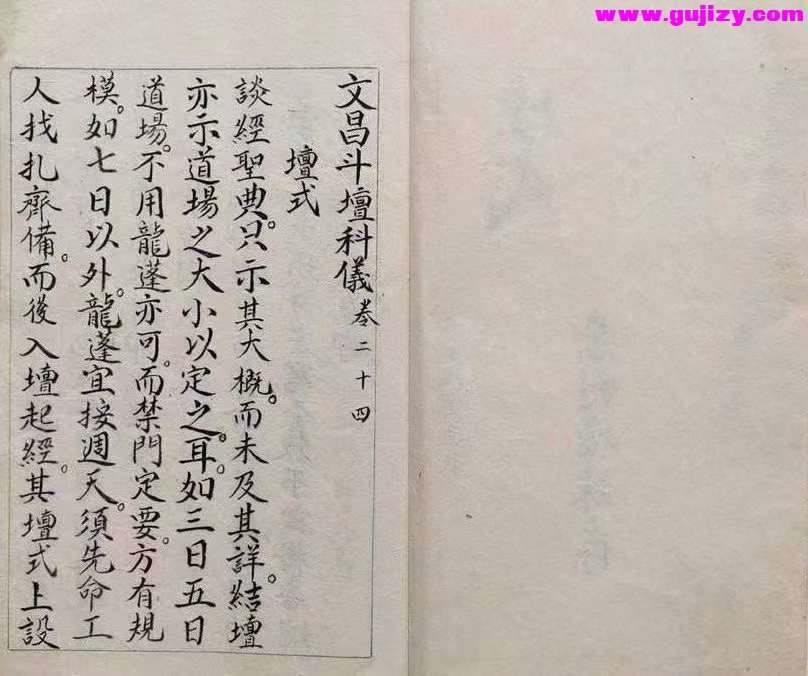 www.gujizy.com
文昌斗壇科儀卷二十四
壇式
談經聖典。只示其大概。而未及其詳。結壇
亦示道場之大小以定之。耳。如三日五日
道場。不用龍蓬亦可。而禁門定要。方有規
模。如七日以外。龍蓬宜接週天。須先命工
人找扎齊備。而後入壇起經。其壇式上設